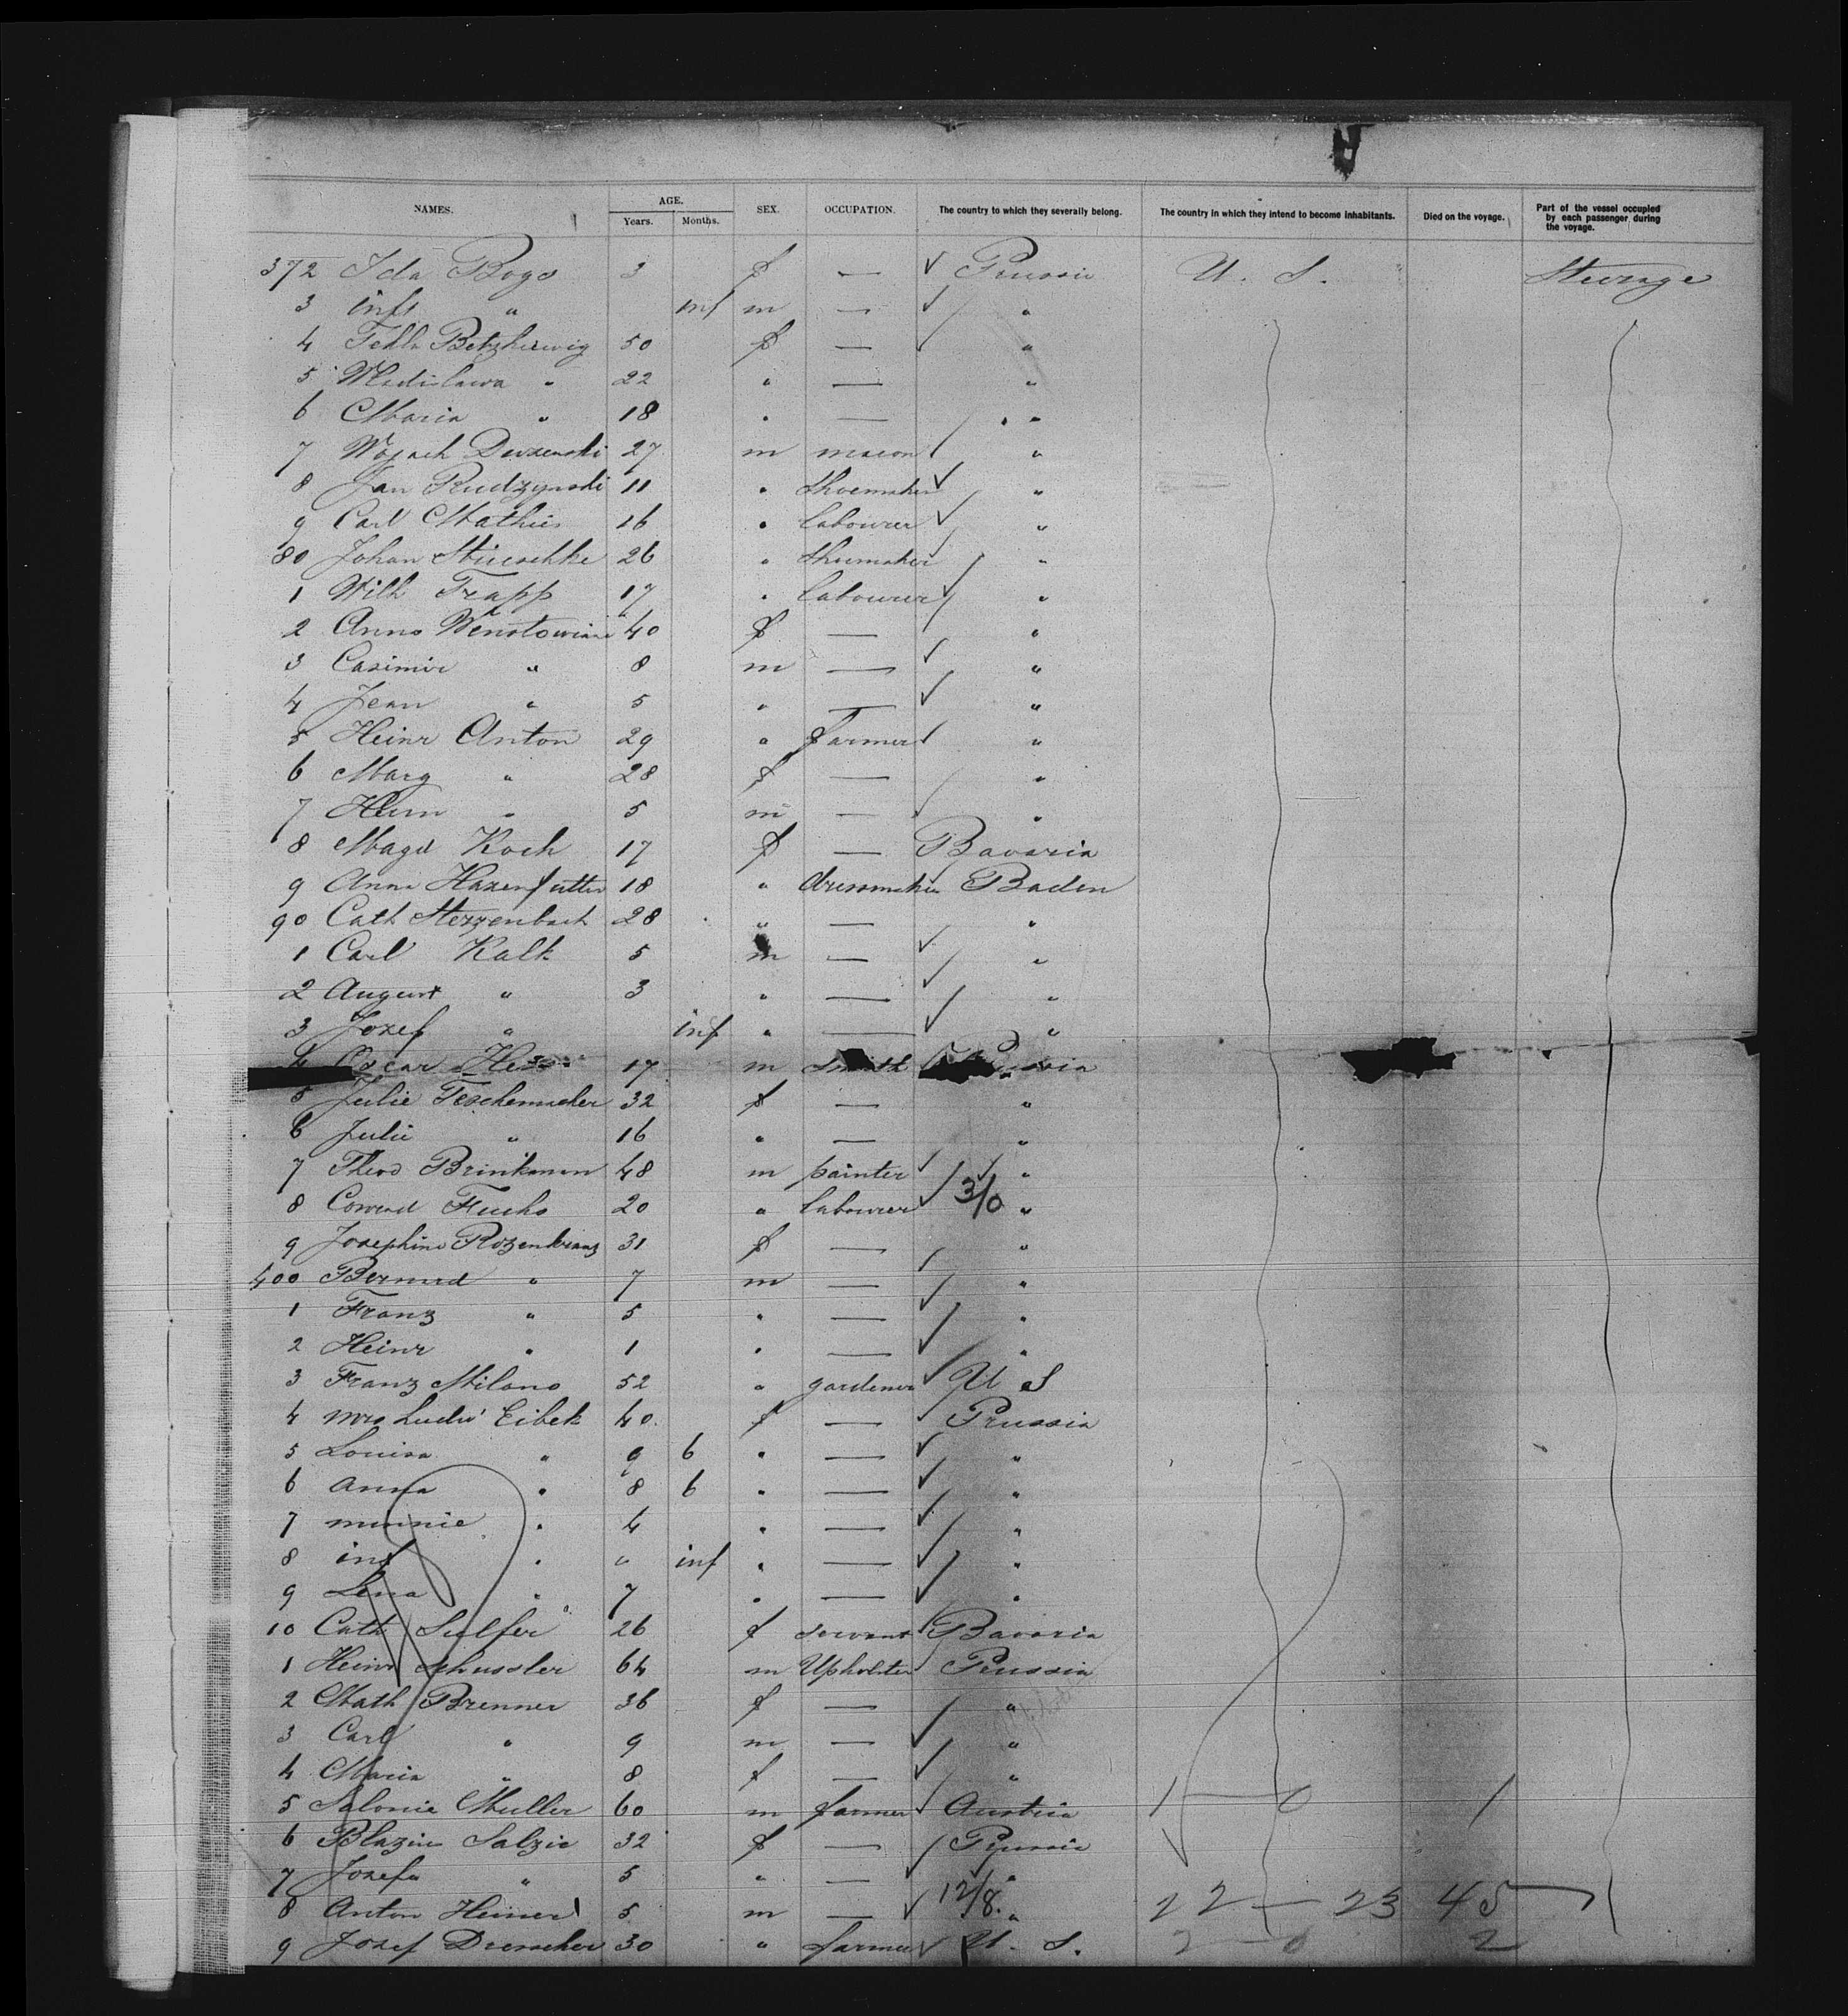 NAMES. AGE. SEX. OCCUPATION. The country to which they severally belong. The country in which they intend to become inhabitants. Died on the voyage. Part of the vessel occupied by each passenger during the voyage.
Years. Months.
372 Ida Bogs 3 f — ✓ Prussia U. S. Steerage
3 inft " inf m — ✓ "
4 Tekla 50 f — "
5 Wladislawa " 22 " — "
6 Maria " 18 " — "
7 27 m mason "
8 Jan Rudzynski 11 " Shoemaker ✓ "
9 Carl Mathies 16 " labourer ✓ "
80 Johan 26 " Shoemaker ✓ "
1 Wilh Trapp 17 " labourer ✓ "
2 Anna 40 f — "
3 Casimir " 8 m — ✓ "
4 Jean " 5 " — ✓ "
5 Heinr Anton 29 " farmer ✓ "
6 Marg " 28 f — "
7 Heinr " 5 m — ✓ "
8 Magd Koch 17 f — Bavaria
9 Anna 18 " dressmaker Baden
90 Cath Sterzenbach 28 " — "
1 Carl Kalk 5 m — ✓ "
2 August " 3 " — ✓ "
3 Jozef " inf " — ✓ "
4 Oscar Hess 17 m smith Prussia
5 Julie Teschemacher 32 f — "
6 Julie " 16 " — "
7 Theod Brinkman 48 m painter ✓ "
8 Conrad Fuchs 20 " labourer ✓ 3/0 "
9 Josephine Rozenkranz 31 f — "
400 Bernard " 7 m — ✓ "
1 Franz " 5 " — ✓ "
2 Heinr " 1 " — ✓ "
3 Franz Milano 52 " gardener ✓ U S
4 Mrs Eibek 40 f — ✓ Prussia
5 Louisa " 9 6 " — ✓ "
6 Anna " 8 6 " — ✓ "
7 minnie " 4 " — ✓ "
8 inf " " inf " — ✓ "
9 Lena " 7 " — ✓ "
10 Cath Sulfer 26 f servant Bavaria
1 Heinr Schussler 64 m Upholster Prussia
2 Math Brenner 36 f — "
3 Carl " 9 m — ✓ "
4 Maria " 8 f — ✓ "
5 Salonie Muller 60 m farmer ✓ Austria 1 — 0 1
6 Salzie 32 f — Prussia
7 Jozefa " 5 " — ✓ "
8 Anton Heiner 5 m — ✓ 12/8. " 22 — 23 45
9 Jozef Drescher 30 " farmer ✓ U. S. 2 — 0 2